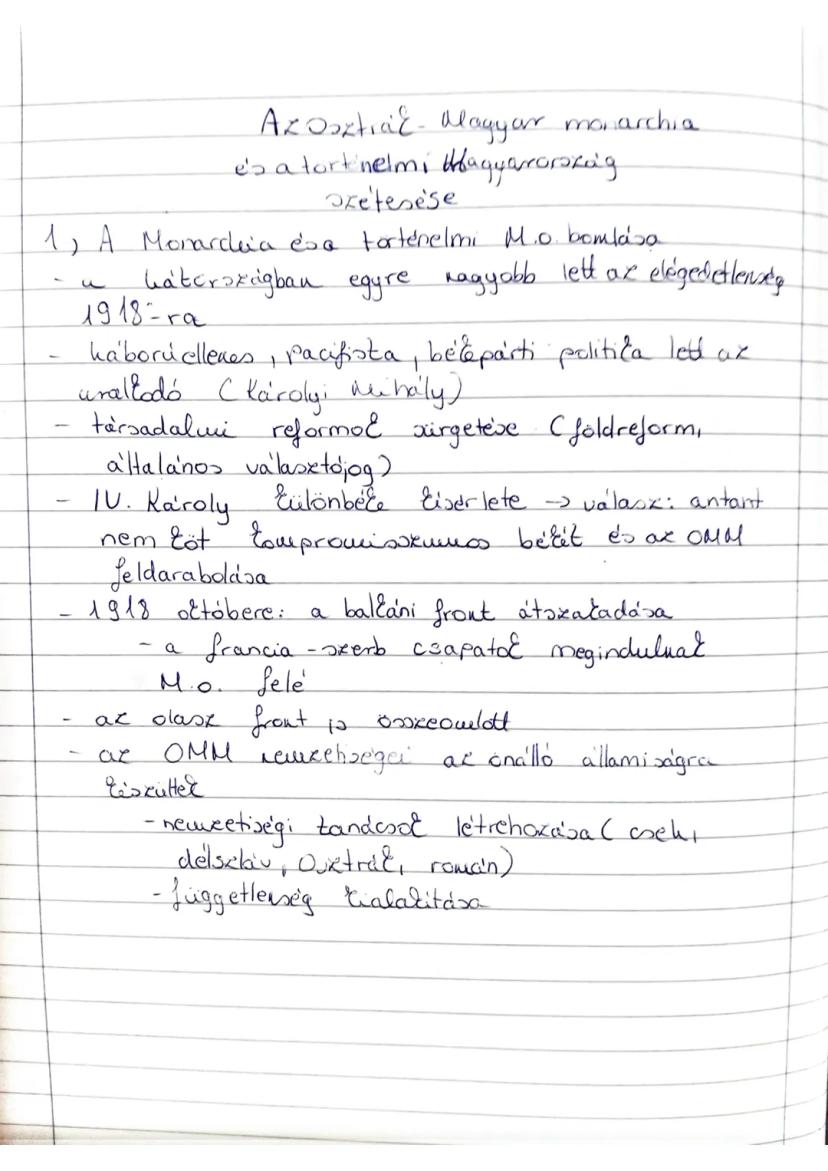 Az Osztrák-Magyar monarchia
és a történelmi Magyarország
szétesése
1, A Monarchia és a történelmi M.o. bomlása
- a hátországban egyre nagyobb lett az elégedetlenség
1918-ra
- háborúellenes, pacifista, békepárti politika lett az
uralkodó (Károlyi Mihály)
- társadalmi reformok sürgetése (földreform,
általános választójog)
- IV. Károly különbéke kísérlete → válasz: antant
nem köt kompromisszumos békét és az OMM
feldarabolása
- 1918 októbere: a balkáni front átszakadása
- a francia-szerb csapatok megindulnak
M.o. felé
- az olasz front is összeomlott
- az OMM nemzetiségei az önálló államiságra
készültek
- nemzetiségi tanácsok létrehozása (cseh,
délszláv, Osztrák, román)
- függetlenség kialakítása